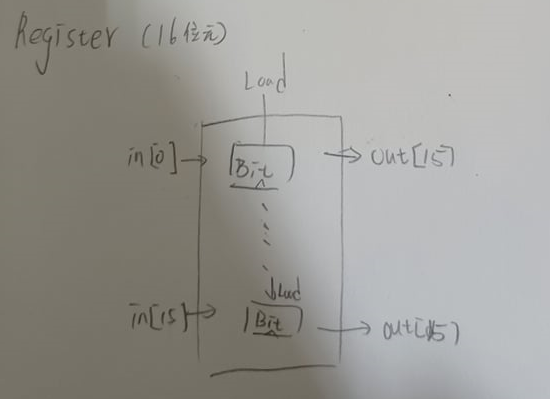 Register (16位元)
Load
in[0]
Bit
out[15]
Load
in[15]
Bit
out[15]